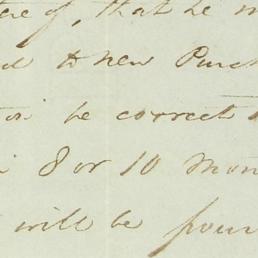 that he
to new Purch
be correct
8 or 10 Mon
will be foun